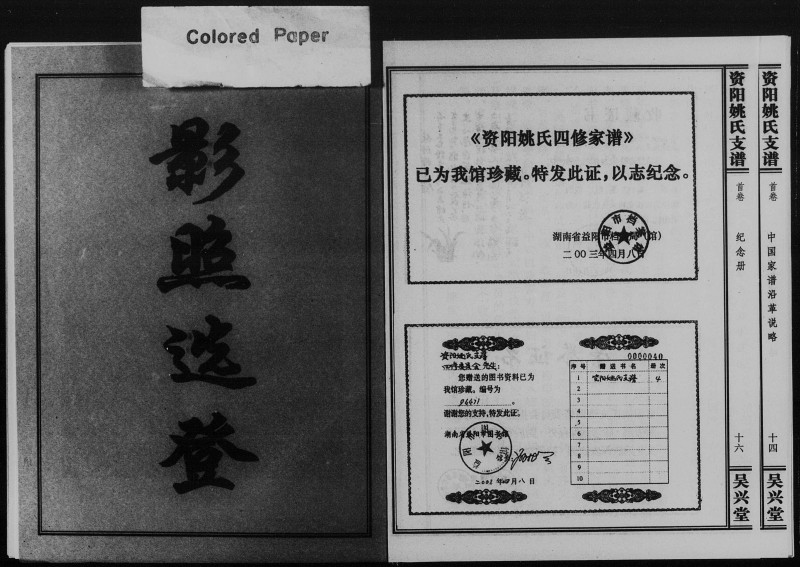 Colored Paper
影照选登
《资阳姚氏四修家谱》
已为我馆珍藏。特发此证，以志纪念。
湖南省益阳市档案局（馆）
二00三年四月八日
资阳姚氏支谱
四修委员会 先生：
您赠送的图书资料已为
我馆珍藏。编号为
06471。
谢谢您的支持，特发此证。
湖南省益阳市图书馆
2003 年四月八日
0000040
序号 赠送书名 册次
1 资阳姚氏支谱 4
2
3
4
5
6
7
8
9
10
资阳姚氏支谱
首卷
纪念册
十六
吴兴堂
资阳姚氏支谱
首卷
中国家谱沿革说略
十四
吴兴堂